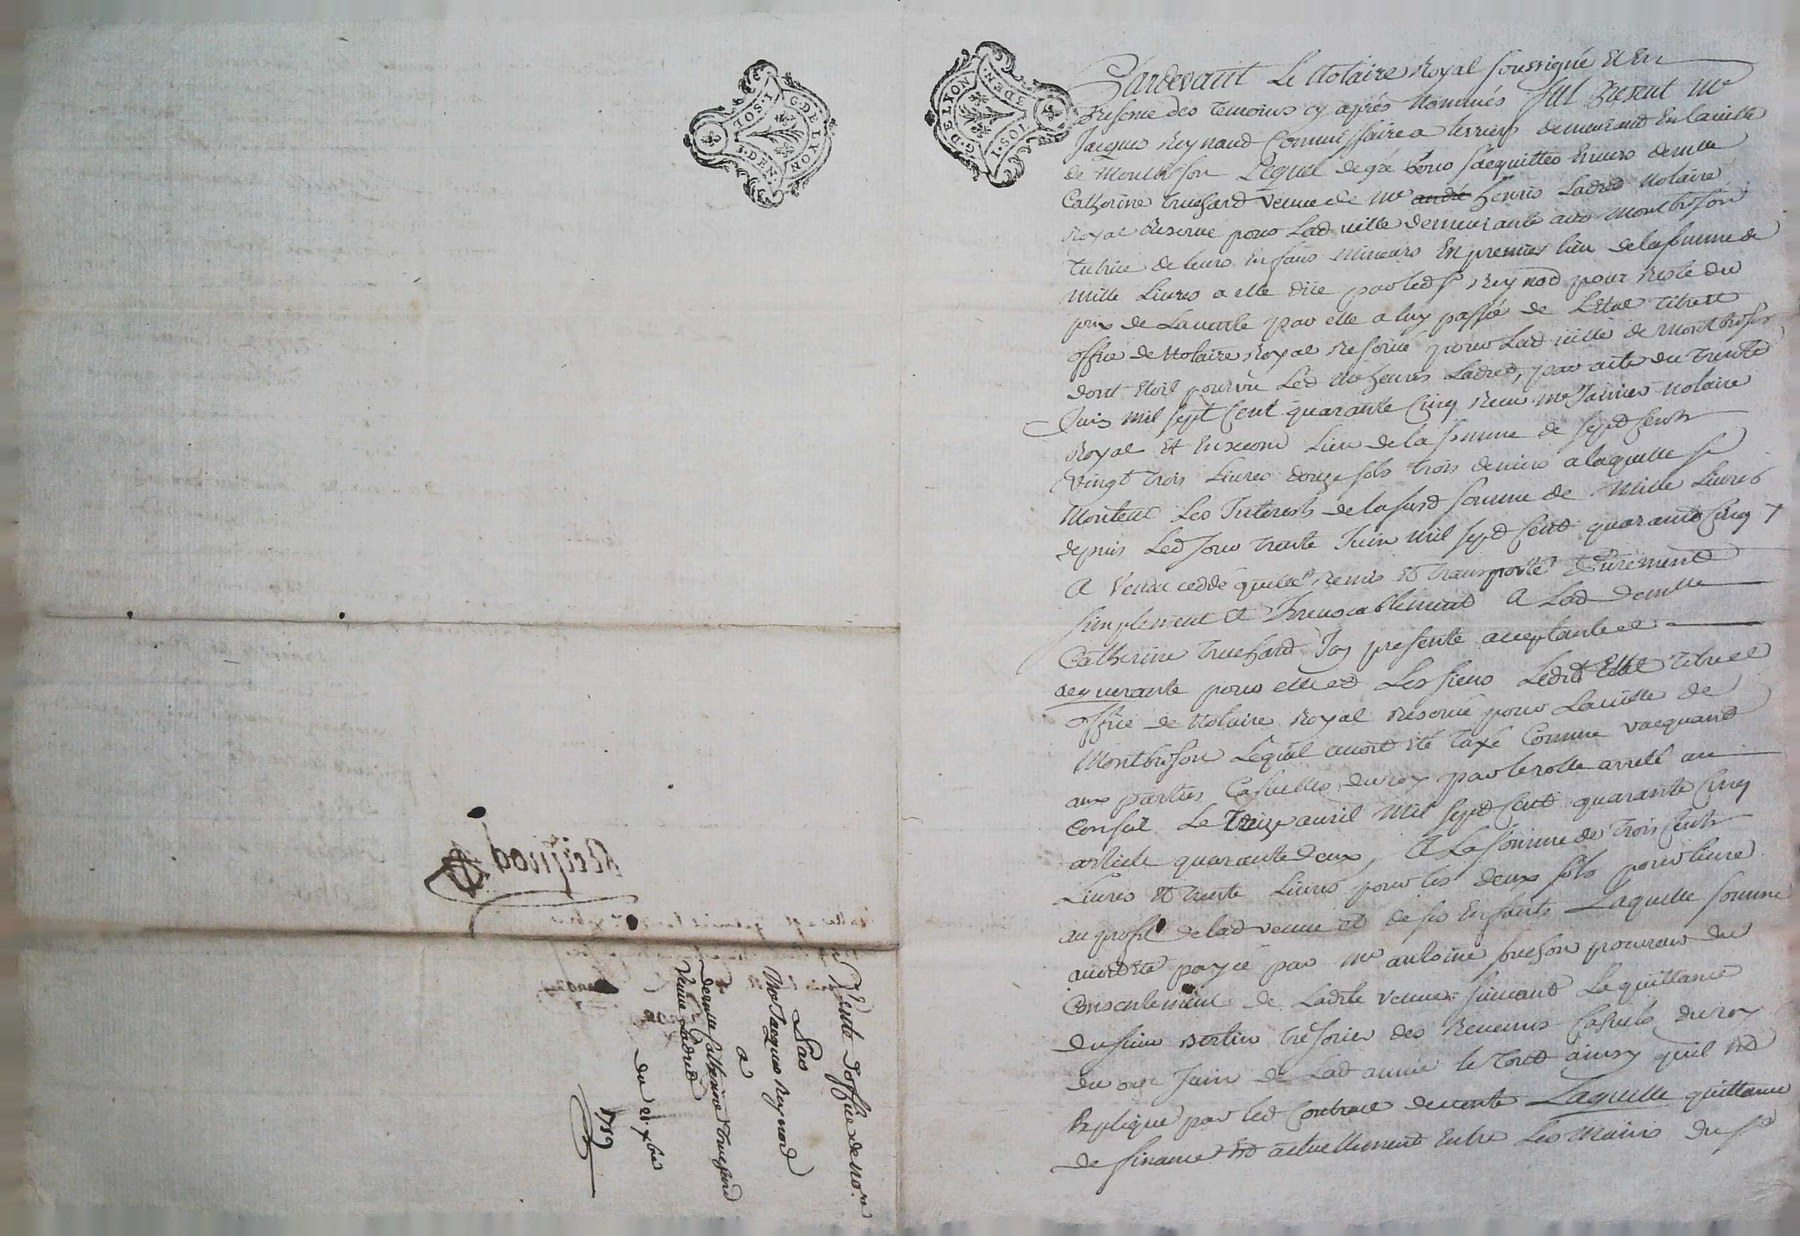 G·DE LYON
1·SOL
3·DEN·
G·DE LYON
1·SOL
3·DEN·
Pardevant Le Notaire Royal soussigné Et En
Presence des temoins cy apres Nommés fut present me
Jacques Reynaud Commissaire a terriers demeurant En la ville
de Montbrison Lequel de gré pour s'acquitter Envers demlle
Catherine truchard veuve de me andré henris Ladret Notaire
Royal Reservé pour Lad ville demeurante aud Montbrison
tutrice de leurs Enfans mineurs En premier lieu de la somme de
mille Livres a elle dûe par led Sr Reynod pour Reste du
prix de La vente par elle a luy passée de L'Etat titre et
office de Notaire Royal Reservé pour Lad ville de Montbrison
dont Etoit pourvu Led me henris Ladret, par acte du trente
Juin mil sept Cent quarante Cinq Recu me Notaire
Royal Et En second Lieu de la somme de sept Cents
vingt trois Livres douze sols trois deniers a laquelle se
montent Les Interests de la susd somme de mille Livres
depuis Led Jour trente Juin mil sept Cent quarante Cinq
A vendu cedde quitté Remis Et transporté purement
simplement Et Irrevocablement A Lad demlle
Catherine truchard Icy presente acceptante et
acquerante pour elle et Les siens Ledit Etat titre et
office de Notaire Royal Reservé pour La ville de
Montbrison Lequel avoit été taxé Comme vacquand
aux parties Casuelles du roy par le rolle arreté au
Conseil Le treize avril mil sept Cent quarante Cinq
article quarante deux, A La somme de trois Cents
Livres Et trente Livres pour les deux sols pour livre
au profit de lad veuve et de ses Enfants Laquelle somme
avoit été payée par me antoine procureur du
Consentement de Ladite veuve suivant La quittance
du sieur Bertin tresorier des Revenus Casuels du roy
du onze Juin de Lad année le tout ainsy quil Est
Expliqué par led Contract de vente Laquelle quittance
de finance Est actuellement Entre Les mains du Sr
Reijnod
Vente d'office de Nore
Par
Me Jacques Reynod
a
Demlle Catherine Truchard
Veuve Ladret
du xbre
1759